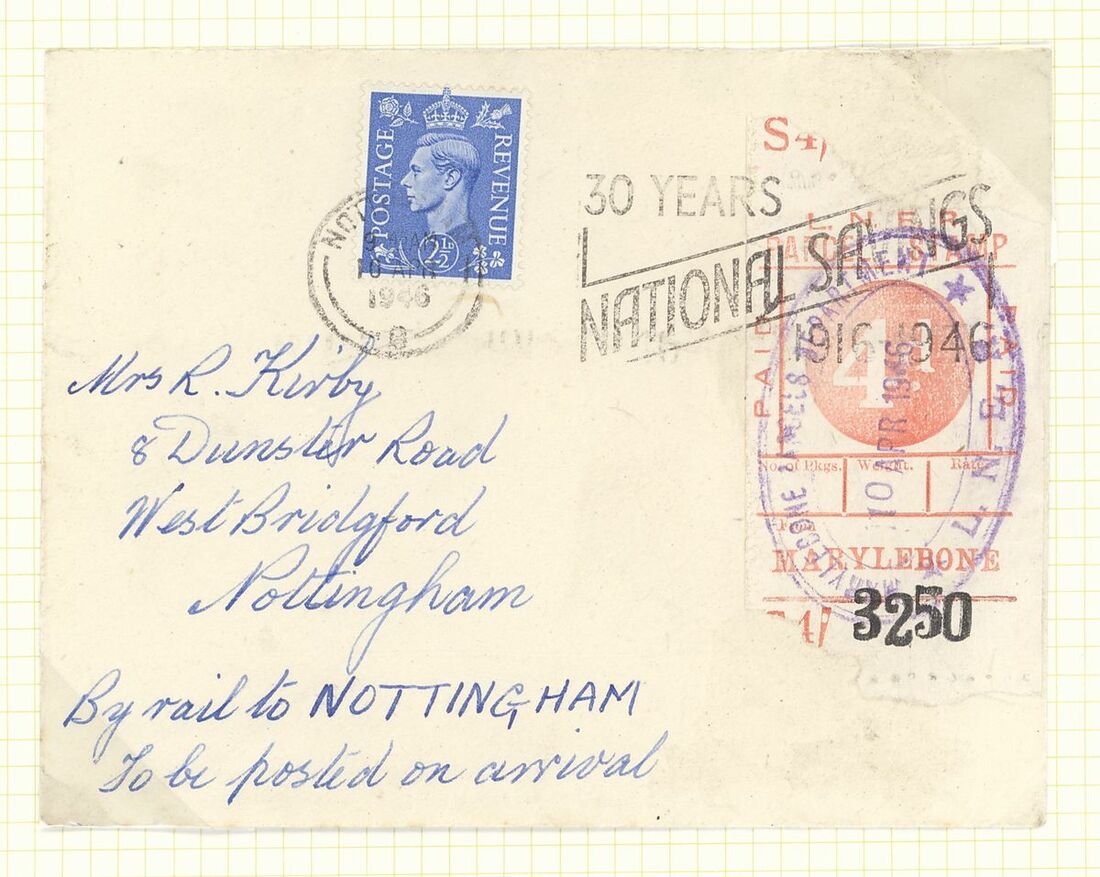 POSTAGE REVENUE
2½D
10 APR
1946
30 YEARS
NATIONAL SAVINGS
1916-1946
S4/
L.N.E.R.
PARCEL STAMP
PAID
4D.
PAID
No. of Pkgs. Weight. Rate
MARYLEBONE
3250
L.N.E.R.
MARYLEBONE
10 APR 1946
Mrs R. Kirby
8 Dunster Road
West Bridgford
Nottingham
By rail to NOTTINGHAM
To be posted on arrival